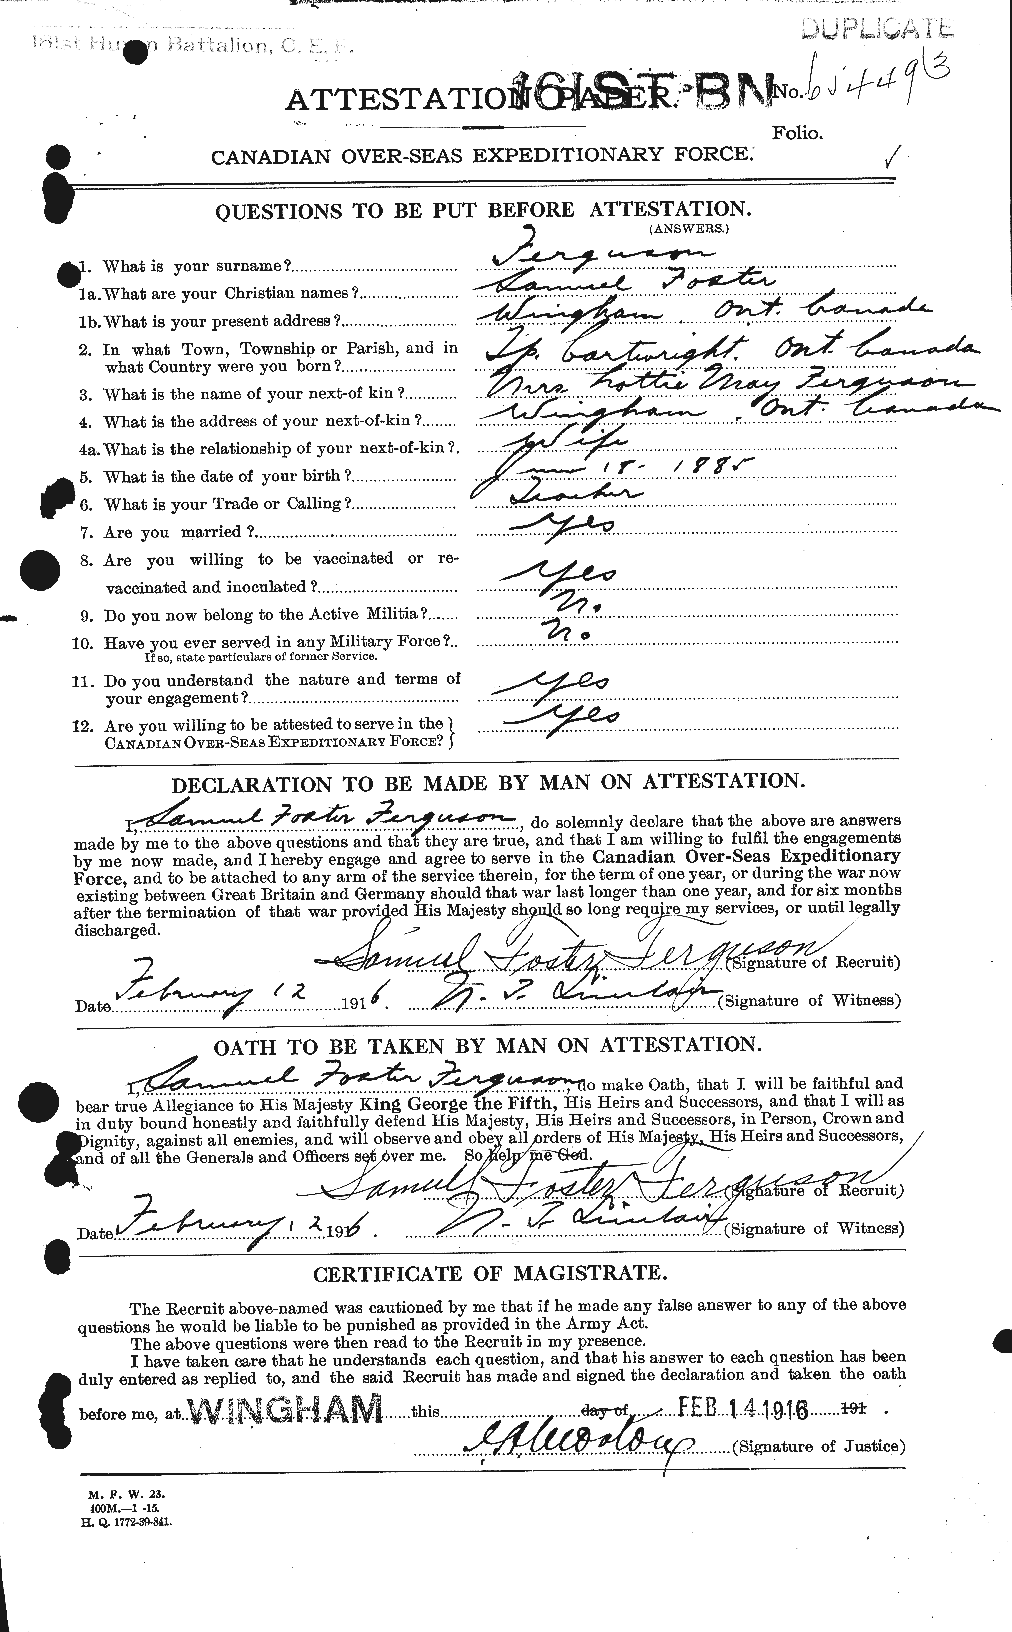 161st Huron Battalion, C. E. F.
DUPLICATE
ATTESTATION PAPER.
161ST BN
No. 654493
Folio.
CANADIAN OVER-SEAS EXPEDITIONARY FORCE.
QUESTIONS TO BE PUT BEFORE ATTESTATION.
(ANSWERS.)
1. What is your surname? Ferguson
1a. What are your Christian names? Samuel Foster
1b. What is your present address? Wingham. Ont. Canada
2. In what Town, Township or Parish, and in
what Country were you born? Tp. Cartwright. Ont. Canada
3. What is the name of your next-of kin? Mrs Lottie May Ferguson
4. What is the address of your next-of-kin? Wingham, Ont. Canada
4a. What is the relationship of your next-of-kin? Wife
5. What is the date of your birth? June 18 - 1885
6. What is your Trade or Calling? Teacher
7. Are you married? Yes
8. Are you willing to be vaccinated or re-
vaccinated and inoculated? Yes
9. Do you now belong to the Active Militia? No
10. Have you ever served in any Military Force? No
If so, state particulars of former Service.
11. Do you understand the nature and terms of
your engagement? Yes
12. Are you willing to be attested to serve in the
CANADIAN OVER-SEAS EXPEDITIONARY FORCE? Yes
DECLARATION TO BE MADE BY MAN ON ATTESTATION.
I, Samuel Foster Ferguson, do solemnly declare that the above are answers
made by me to the above questions and that they are true, and that I am willing to fulfil the engagements
by me now made, and I hereby engage and agree to serve in the Canadian Over-Seas Expeditionary
Force, and to be attached to any arm of the service therein, for the term of one year, or during the war now
existing between Great Britain and Germany should that war last longer than one year, and for six months
after the termination of that war provided His Majesty should so long require my services, or until legally
discharged.
Samuel Foster Ferguson (Signature of Recruit)
Date February 12 1916. N. T. Sinclair (Signature of Witness)
OATH TO BE TAKEN BY MAN ON ATTESTATION.
I, Samuel Foster Ferguson, do make Oath, that I will be faithful and
bear true Allegiance to His Majesty King George the Fifth, His Heirs and Successors, and that I will as
in duty bound honestly and faithfully defend His Majesty, His Heirs and Successors, in Person, Crown and
Dignity, against all enemies, and will observe and obey all orders of His Majesty, His Heirs and Successors,
and of all the Generals and Officers set over me. So help me God.
Samuel Foster Ferguson (Signature of Recruit)
Date February 12 1916. N. T. Sinclair (Signature of Witness)
CERTIFICATE OF MAGISTRATE.
The Recruit above-named was cautioned by me that if he made any false answer to any of the above
questions he would be liable to be punished as provided in the Army Act.
The above questions were then read to the Recruit in my presence.
I have taken care that he understands each question, and that his answer to each question has been
duly entered as replied to, and the said Recruit has made and signed the declaration and taken the oath
before me, at WINGHAM this day of FEB 14 1916 191 .
(Signature of Justice)
M. F. W. 23.
400M.—1 -15.
H. Q. 1772-39-841.